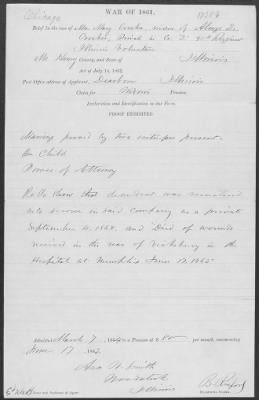 Chicago
WAR OF 1861.
Brief in the case of Mrs Mary Crocker, widow of Alonzo
Crocker, Private in Co. 95th Regiment
Illinois Volunteers
McHenry County, and State of Illinois
Act of July 14, 1862.
Post Office Address of Applicant, Dearborn Illinois
Claim for Widow's Pension.
Declaration and Identification in due Form.
PROOF EXHIBITED.
Marriage proved by two witnesses present.
No Child
Power of Attorney
that was mustered
into service in said company as a private
September 4, 1862, and Died of wounds
received in the rear of Vicksburg in the
Hospital at Memphis June 17, 1863
Admitted March 7, 1864 to a Pension of $8 00 per month, commencing
June 17, 1863
Asa W. Smith
Woodstock
Illinois
Name and Residence of Agent.
Examining Clerk.